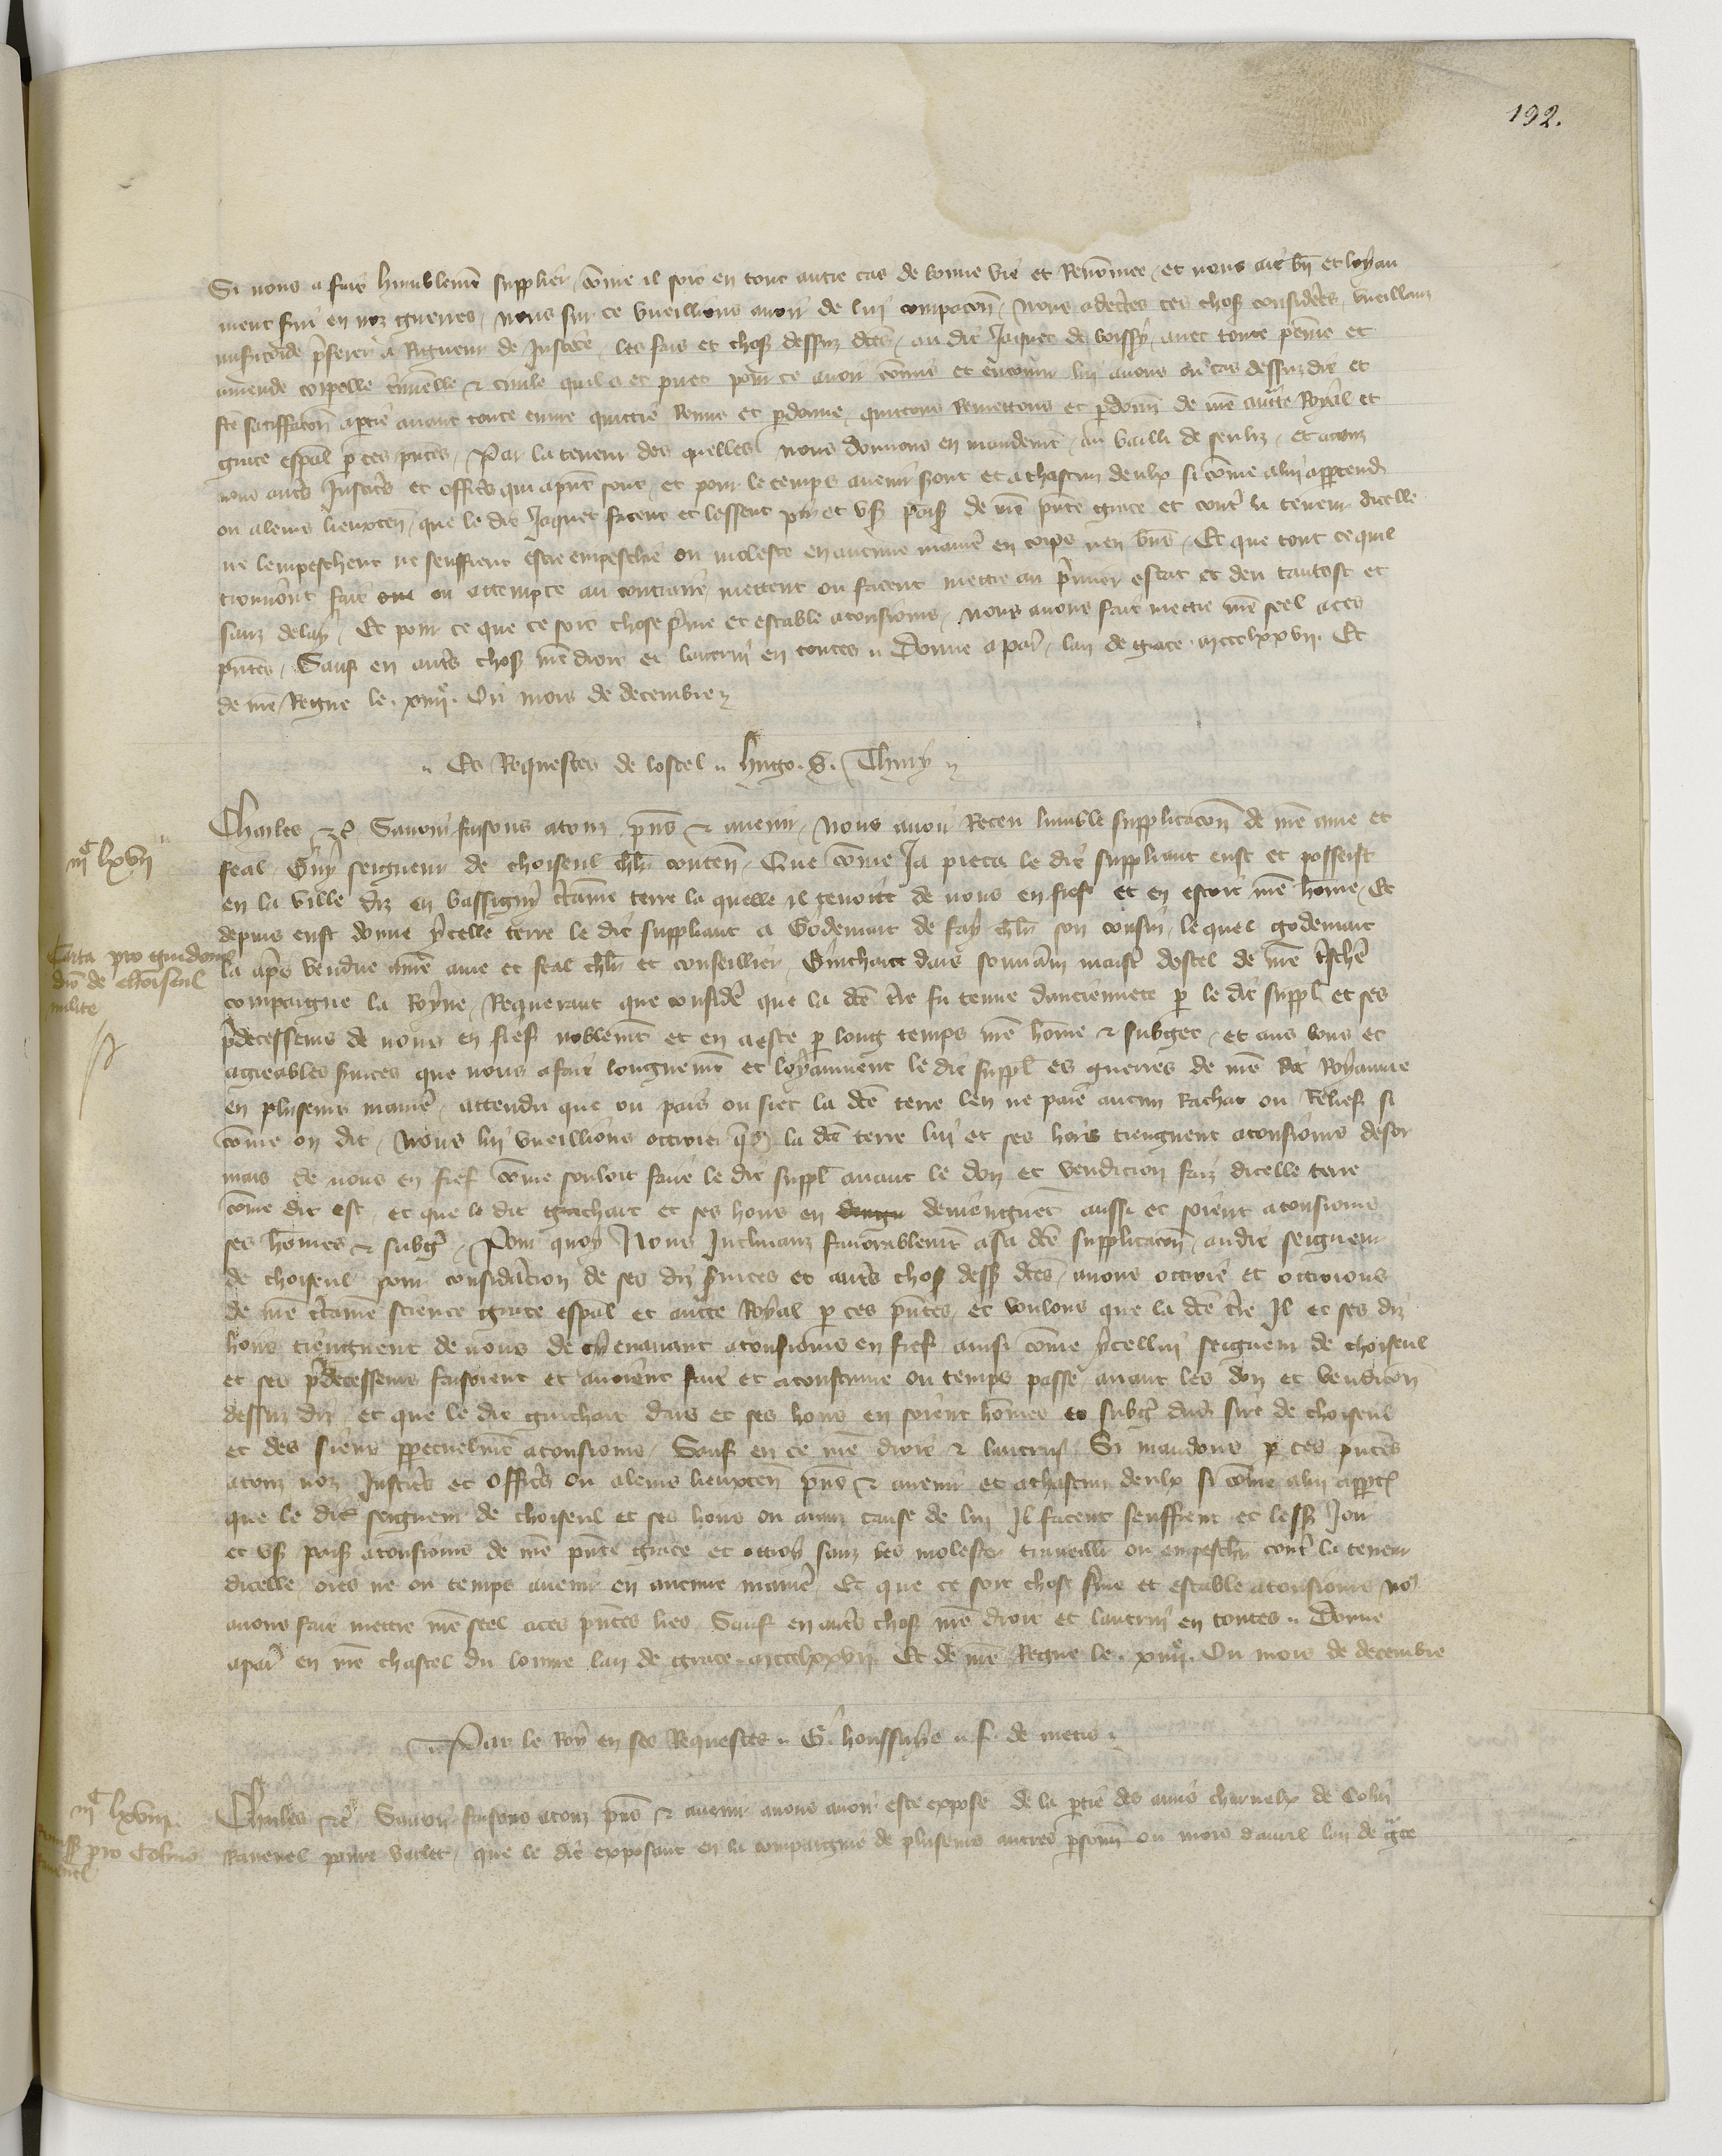 192.
Si nous a fait humblemt supplier, come il soit en tout autre cas de bonne vie et Renomee, et nous ait bn et loyau
ment serui en noz guerres, nous sur ce vueillions auoir de lui compacon, Nous adectes ces choses considers, vueillanz
misicorde pferer a Rigueur de Justice, les fais et choses dessuz dctes, au dit Jaquet de boissy, auec toute peine et
amende corpelle criminelle & ciuile quil a et puet pour ce auoir comis et encouru lui auons ou cas dessuzdit et
fcte satiffacon a ptie auant toute euure quittie Remis et pdonne, quittons Remettons et pdonns de nre auctte Royal et
grace espal p ces pntes, Par la teneur des quelles nous donnons en mandemt, au bailli de senliz, et a touz
noz autres Justiciers et officiers qui a pnt sont, et pour le temps auenir seront et a chascun deulx si come a lui apptendra
ou a leurs lieuxten, que le dit Jaquet facent et lessent joir et user paisiblement de nre pnte grace et contre la teneur dicelle
ne lempeschent ne seuffrent estre empeschie ou moleste en aucune maniere en corps nen biens, Et que tout ce quil
trouueront fait ou attempte au contraire mettent ou facent mettre au premier estat et deu tantost et
sanz delay, Et pour ce que ce soit chose ferme et estable a tousiours, nous auons fait mettre nre seel a ces
pntes, Sauf en autres choses nre droit et lautruy en toutes. Donne a paris, lan de grace mccclxxvii. Et
de nre Regne le xiiiie. Ou mois de decembre
Es Requestes de lostel. Hugo. S. Thury
iiic lxvii
Carta pro guidone
dno de choiseul
milite
Charles &c. Sauoir faisons a touz pns & auenir, Nous auoir Receu lumble supplicacon de nre ame et
feal Guy seigneur de choiseul chlr conten, Que come Ja pieca le dit suppliant eust et possest
en la ville diz en bassigny certaine terre la quelle il tenoit de nous en fief et en estoit nre home, Et
depuis eust donne ycelle terre le dit suppliant a Godemart de fay chlr son cousin, le quel godemart
la apres vendue a nre ame et feal chlr et conseillier, Guichart dars souuain maistre dostel de nre tschre
compaigne la Royne, Requerant que consider que la dce tre fu tenue danciennete p le dit suppl et ses
pdecesseurs de nous en fief noblemt et en a este p long temps nre home & subget, et aus bons et
agreables seruices que nous a fait longuemt et loyaument le dit suppl es guerres de nre Royaume
en pluseurs manieres, attendu que ou pais ou siet la dce terre len ne paie aucun Rachat ou Relief si
come on dit, Nous lui vueillions ottroier que la dce terre lui et ses hoirs tiengnent a tousiours desor
mais de nous en fief come souloit faire le dit suppl auant le don et vendicion faiz dicelle terre
come dit est, et que le dit guichart et ses hoirs en demeurgnet aussi et soient a tousiours
ses homes & subgez, Pour quoy Nous Inclinanz fauorablemt a sa dce supplicacon, au dit seigneur
de choiseul pour consideracion de ses diz seruices et autres choses dessus dctes, auons ottroie et ottroions
de nre certaine science grace espal et auctte Royal p ces pntes, et voulons que la dce tre Il et ses diz
hoirs tiengnent de nous de cy en auant a tousiours en fief ainsi come ycellui seigneur de choiseul
et ses pdecesseurs faisoient et auoient fait et acoustume ou temps passe auant les don et vendicon
dessuz diz, et que le dit guichart dars et ses hoirs en soient homes et subgez dud sire de choiseul
et des siens ppetuelmt a tousiours, Sauf en ce nre droit & lautruy. Si mandons p ces pntes
a touz noz Justiciers et officiers ou a leurs lieuxten pns & auenir et a chascun deulx si come a lui apptient
que le dit seigneur de choiseul et ses hoirs ou aianz cause de lui Il facent seuffrent et lessent Joir
et user paisiblement a tousiours de nre pnte grace et ottroy sanz les molester traueillier ou empescher contre la teneur
dicelle ores ne ou temps auenir en aucune maniere, Et que ce soit chose ferme et estable a tousiours nous
auons fait mettre nre seel a ces pntes lres, Sauf en autres choses nre droit et lautruy en toutes. Donne
a paris en nre chastel du louure lan de grace mccclxxvii. Et de nre Regne le xiiiie. Ou mois de decembre
Par le Roy en ses Requestes. G. houssaye. f. de metis
iiic lxviii
pro Colino
Rauenel
Charles &c. Sauoir faisons a touz pns & auenir a nous auoir este expose de la ptie des amis charnelx de Colin
Rauenel poure varlet, que le dit exposant en la compaignie de pluseurs autres personnes ou mois dauril lan de gce